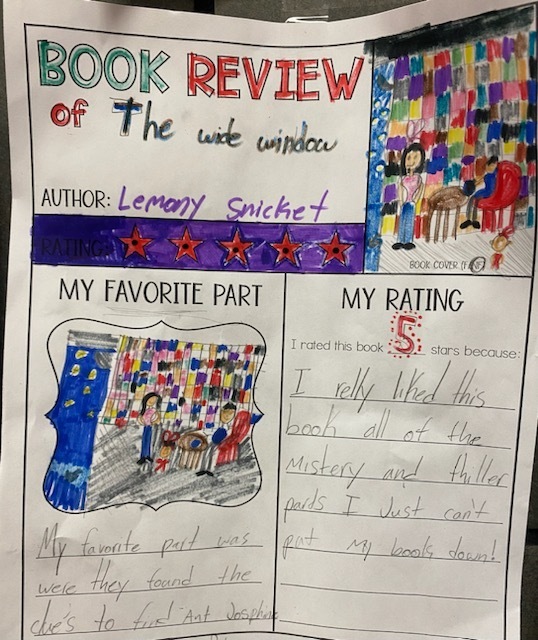 BOOK REVIEW
of The wide window
AUTHOR: Lemony Snicket
RATING:
BOOK COVER (F/NF)
MY FAVORITE PART
My favorite part was
were they found the
clue's to find Ant Josphine
MY RATING
I rated this book 5 stars because:
I relly liked this
book all of the
Mistery and thiller
pards I Just can't
put my books down!